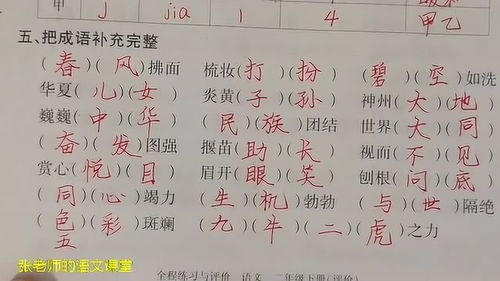 甲 J jia 1 4 甲乙
五、把成语补充完整
(春)(风)拂面 梳妆(打)(扮) (碧)(空)如洗
华夏(儿)(女) 炎黄(子)(孙) 神州(大)(地)
巍巍(中)(华) (民)(族)团结 世界(大)(同)
(奋)(发)图强 揠苗(助)(长) 视而(不)(见)
赏心(悦)(目) 眉开(眼)(笑) 刨根(问)(底)
(同)(心)竭力 (生)(机)勃勃 (与)(世)隔绝
(色)(彩)斑斓 (九)(牛)(二)(虎)之力
五
张老师的语文课堂
全程练习与评价 语文 二年级下册(评价)